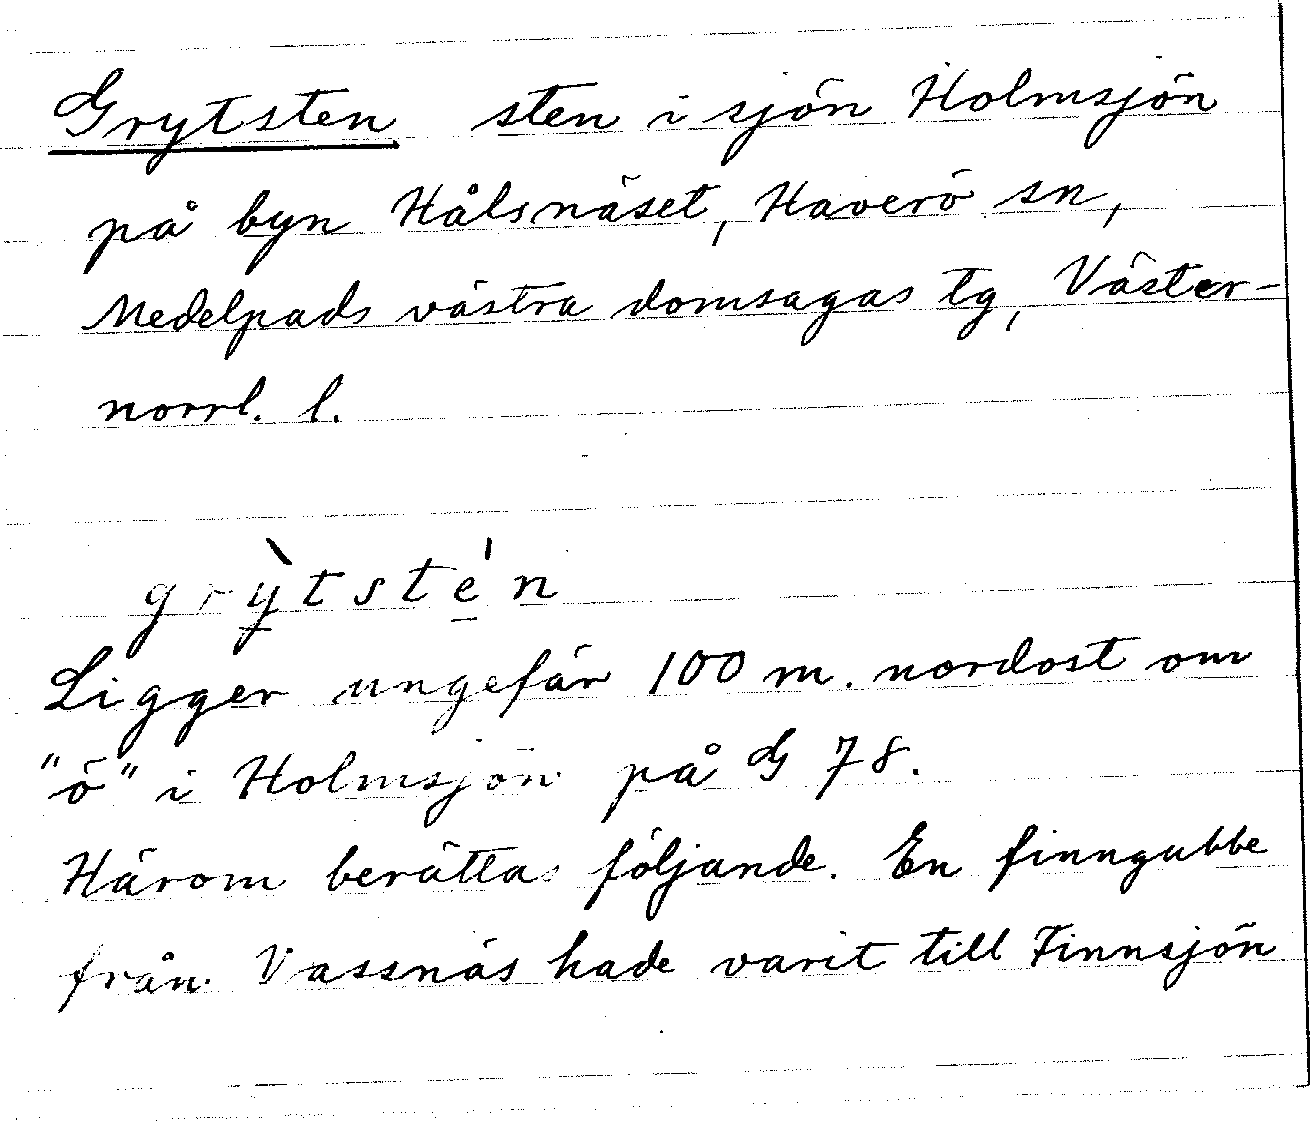 Grytsten sten i sjön Holmsjön
på byn Hålsnäset, Haverö sn,
Medelpads västra domsagas tg, Väster-
norrl. l.
grỳtstén
Ligger ungefär 100 m. nordost om
"ö" i Holmsjön på G 78.
Härom berättas följande. En finngubbe
från Vassnäs hade varit till Finnsjön